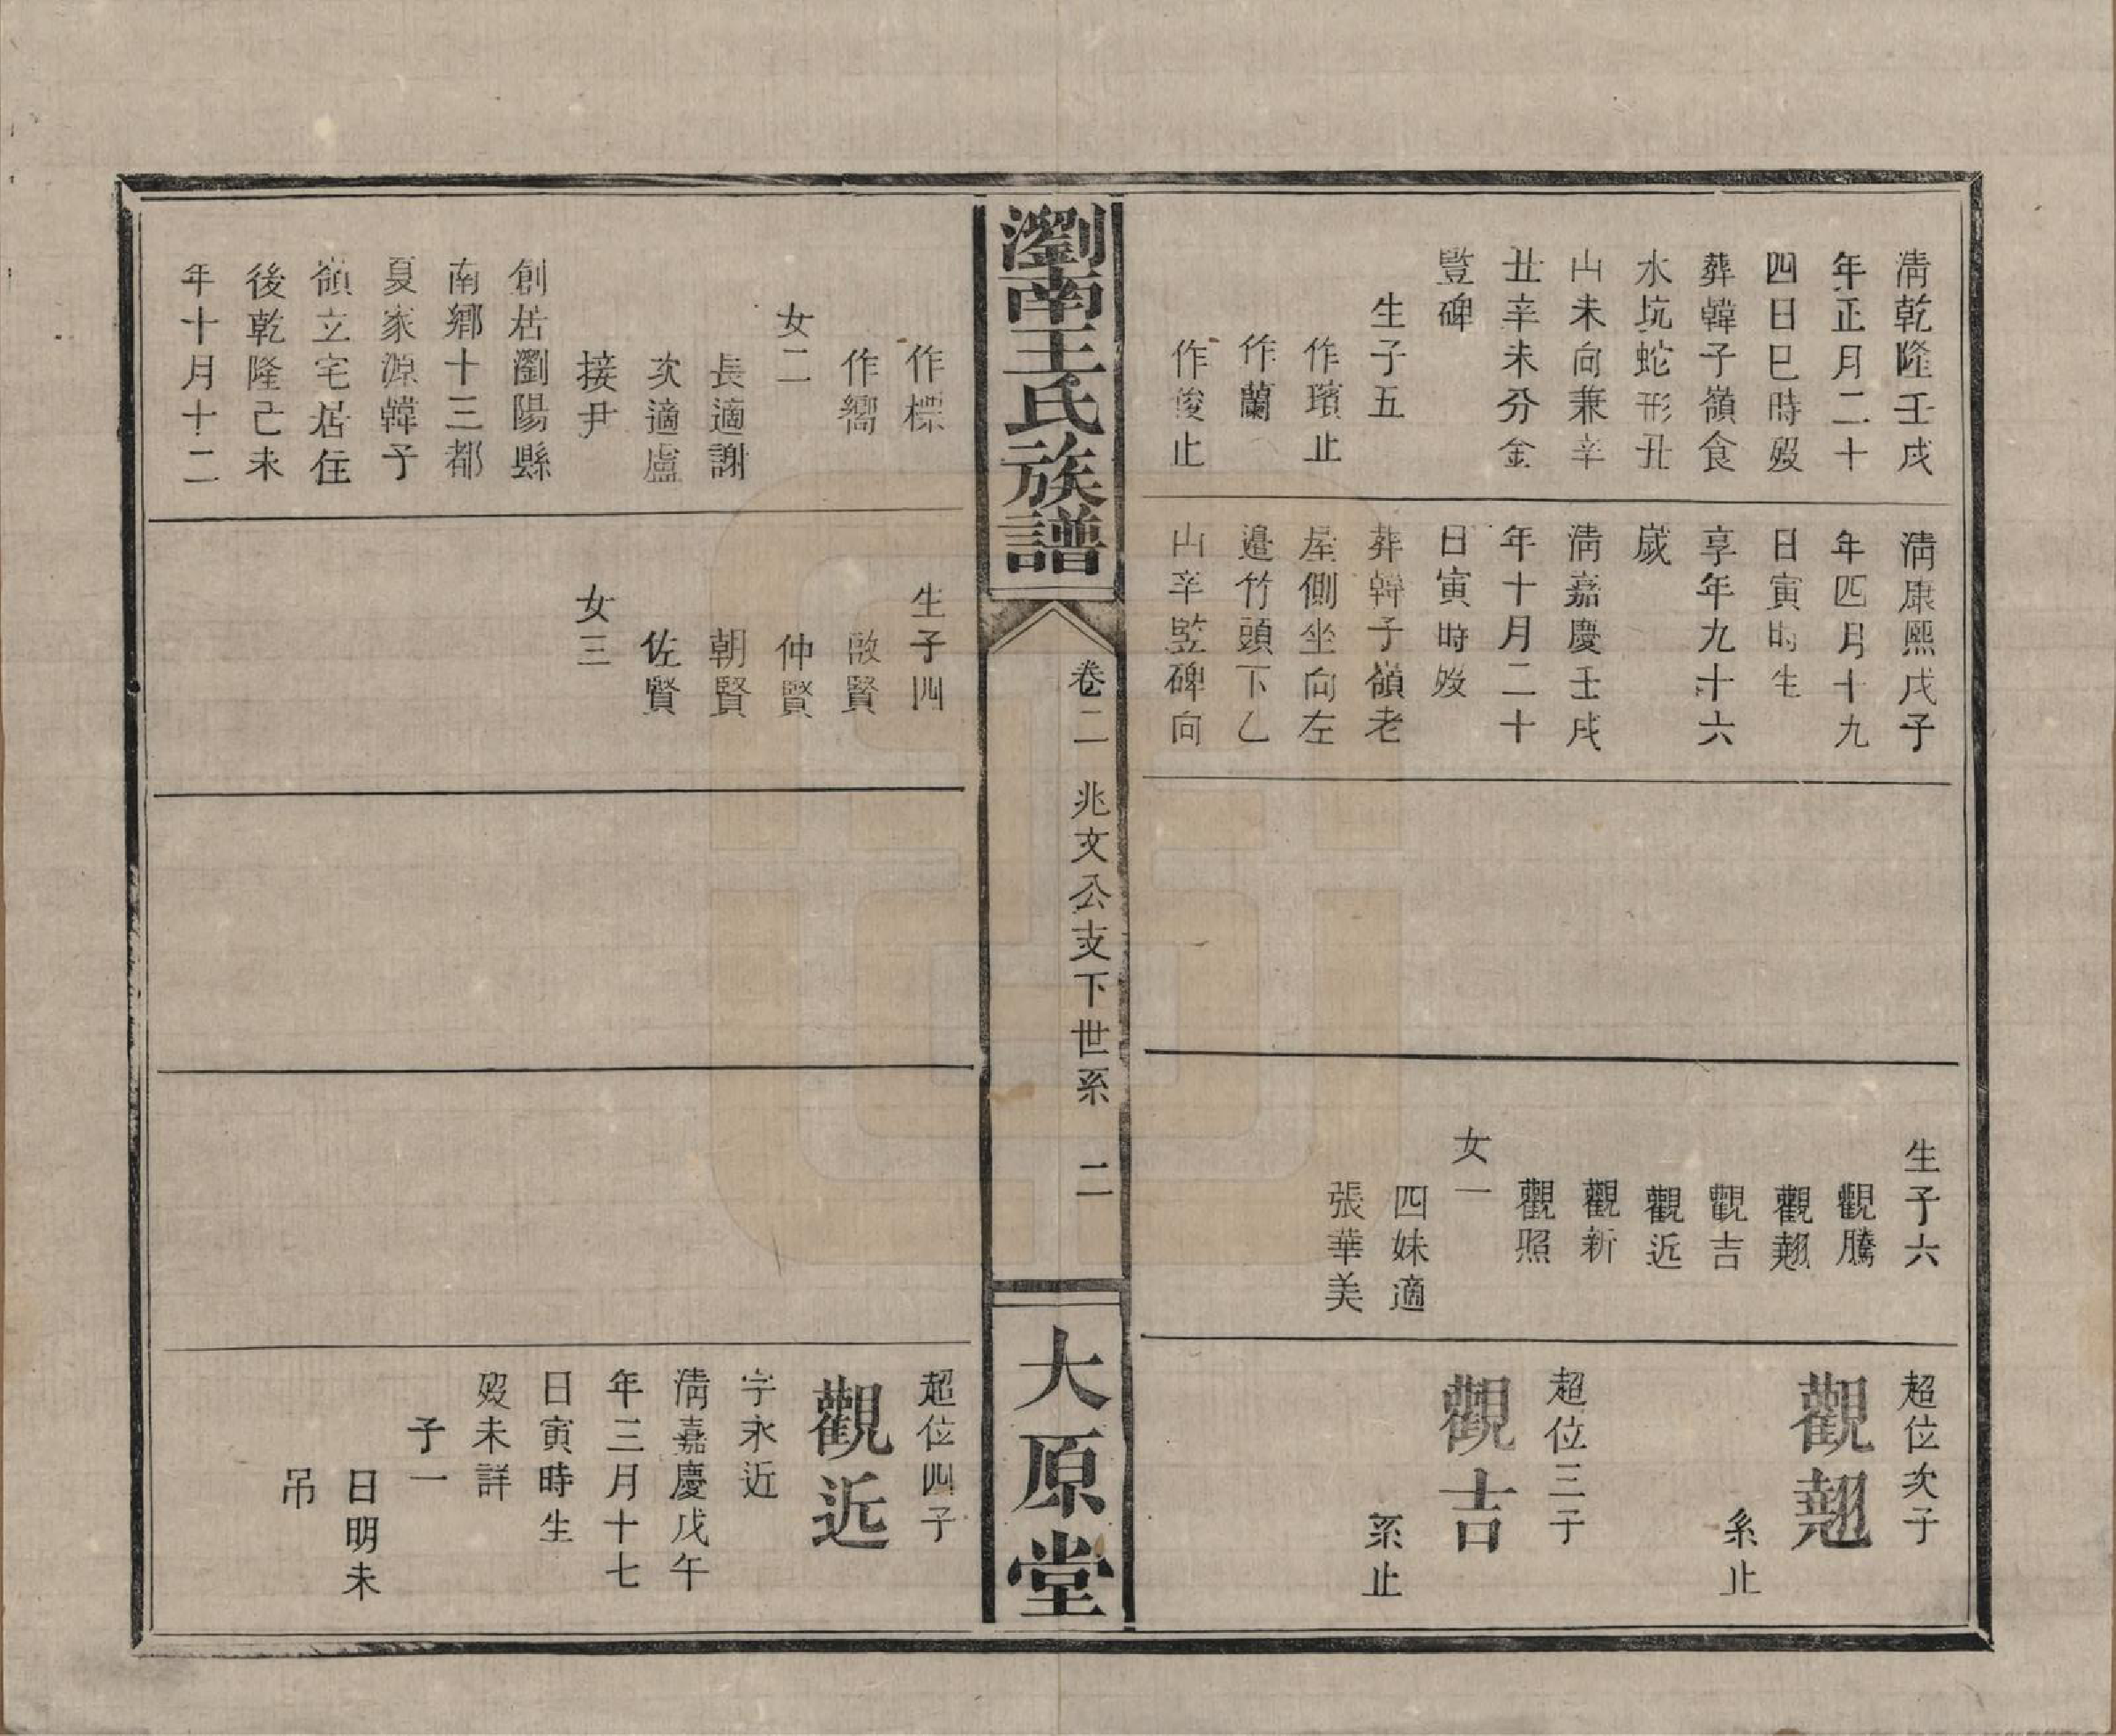 清乾隆壬戌
年正月二十
四日巳時歿
葬韓子嶺食
水坑蛇形丑
山未向兼辛
丑辛未分金
豎碑
生子五
作璸止
作蘭
作俊止
清康熙戊子
年四月十九
日寅時生
享年九十六
歲
清嘉慶壬戌
年十月二十
日寅時歿
葬韓子嶺老
屋側坐向左
邉竹頭下乙
山辛竪碑向
生子六
觀騰
觀翹
觀吉
觀近
觀新
觀照
女一
四妹適
張華美
超位次子
觀翹
系止
超位三子
觀吉
系止
瀏南王氏族譜
卷二 兆文公支下世系 二
大原堂
作標
作嚮
女二
長適謝
次適盧
接尹
創居瀏陽縣
南鄉十三都
夏家源韓子
嶺立宅居住
後乾隆己未
年十月十二
生子四
啟賢
仲賢
朝賢
佐賢
女三
超位四子
觀近
字永近
清嘉慶戊午
年三月十七
日寅時生
歿未詳
子一
日明未
吊